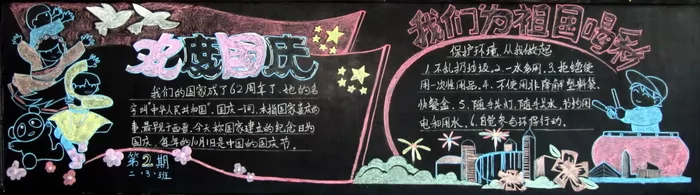 欢度国庆
我们的国家成了62周年了,她的名
字叫"中华人民共和国"。国庆一词,本指国家喜庆的
事、最早于西晋。今天称国家建立的纪念日为
国庆。每年的10月1日是中国的国庆节。
第2期
二.3.班
我们为祖国喝彩
保护环境,从我做起
1.不乱扔垃圾。2.一水多用。3.拒绝使
用一次性用品。4.不使用非降解塑料袋、
快餐盒。5.随手关灯、随手关水、节约用
电和用水。6.自觉参与环保行动。